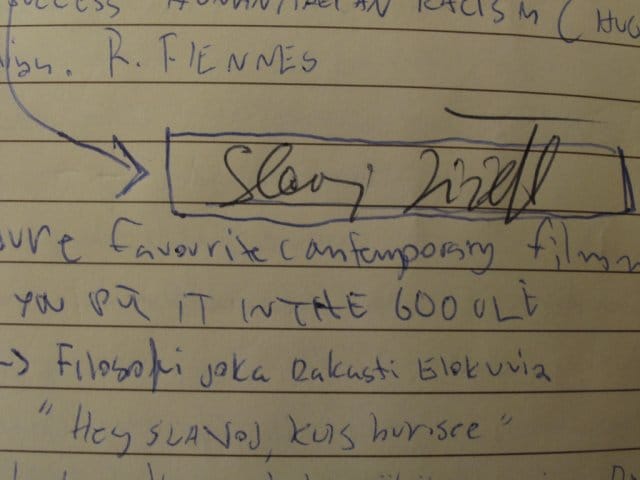 SUCCESS HUMANITARIAN RACISM (HUG
R. FIENNES
Slavoj Zizek
favourite contemporary film
YOU PUT IT IN THE GOOGLE
-> Filosofi joka Rakasti Elokuvia
"HEY SLAVOJ, KUIS hurisee"